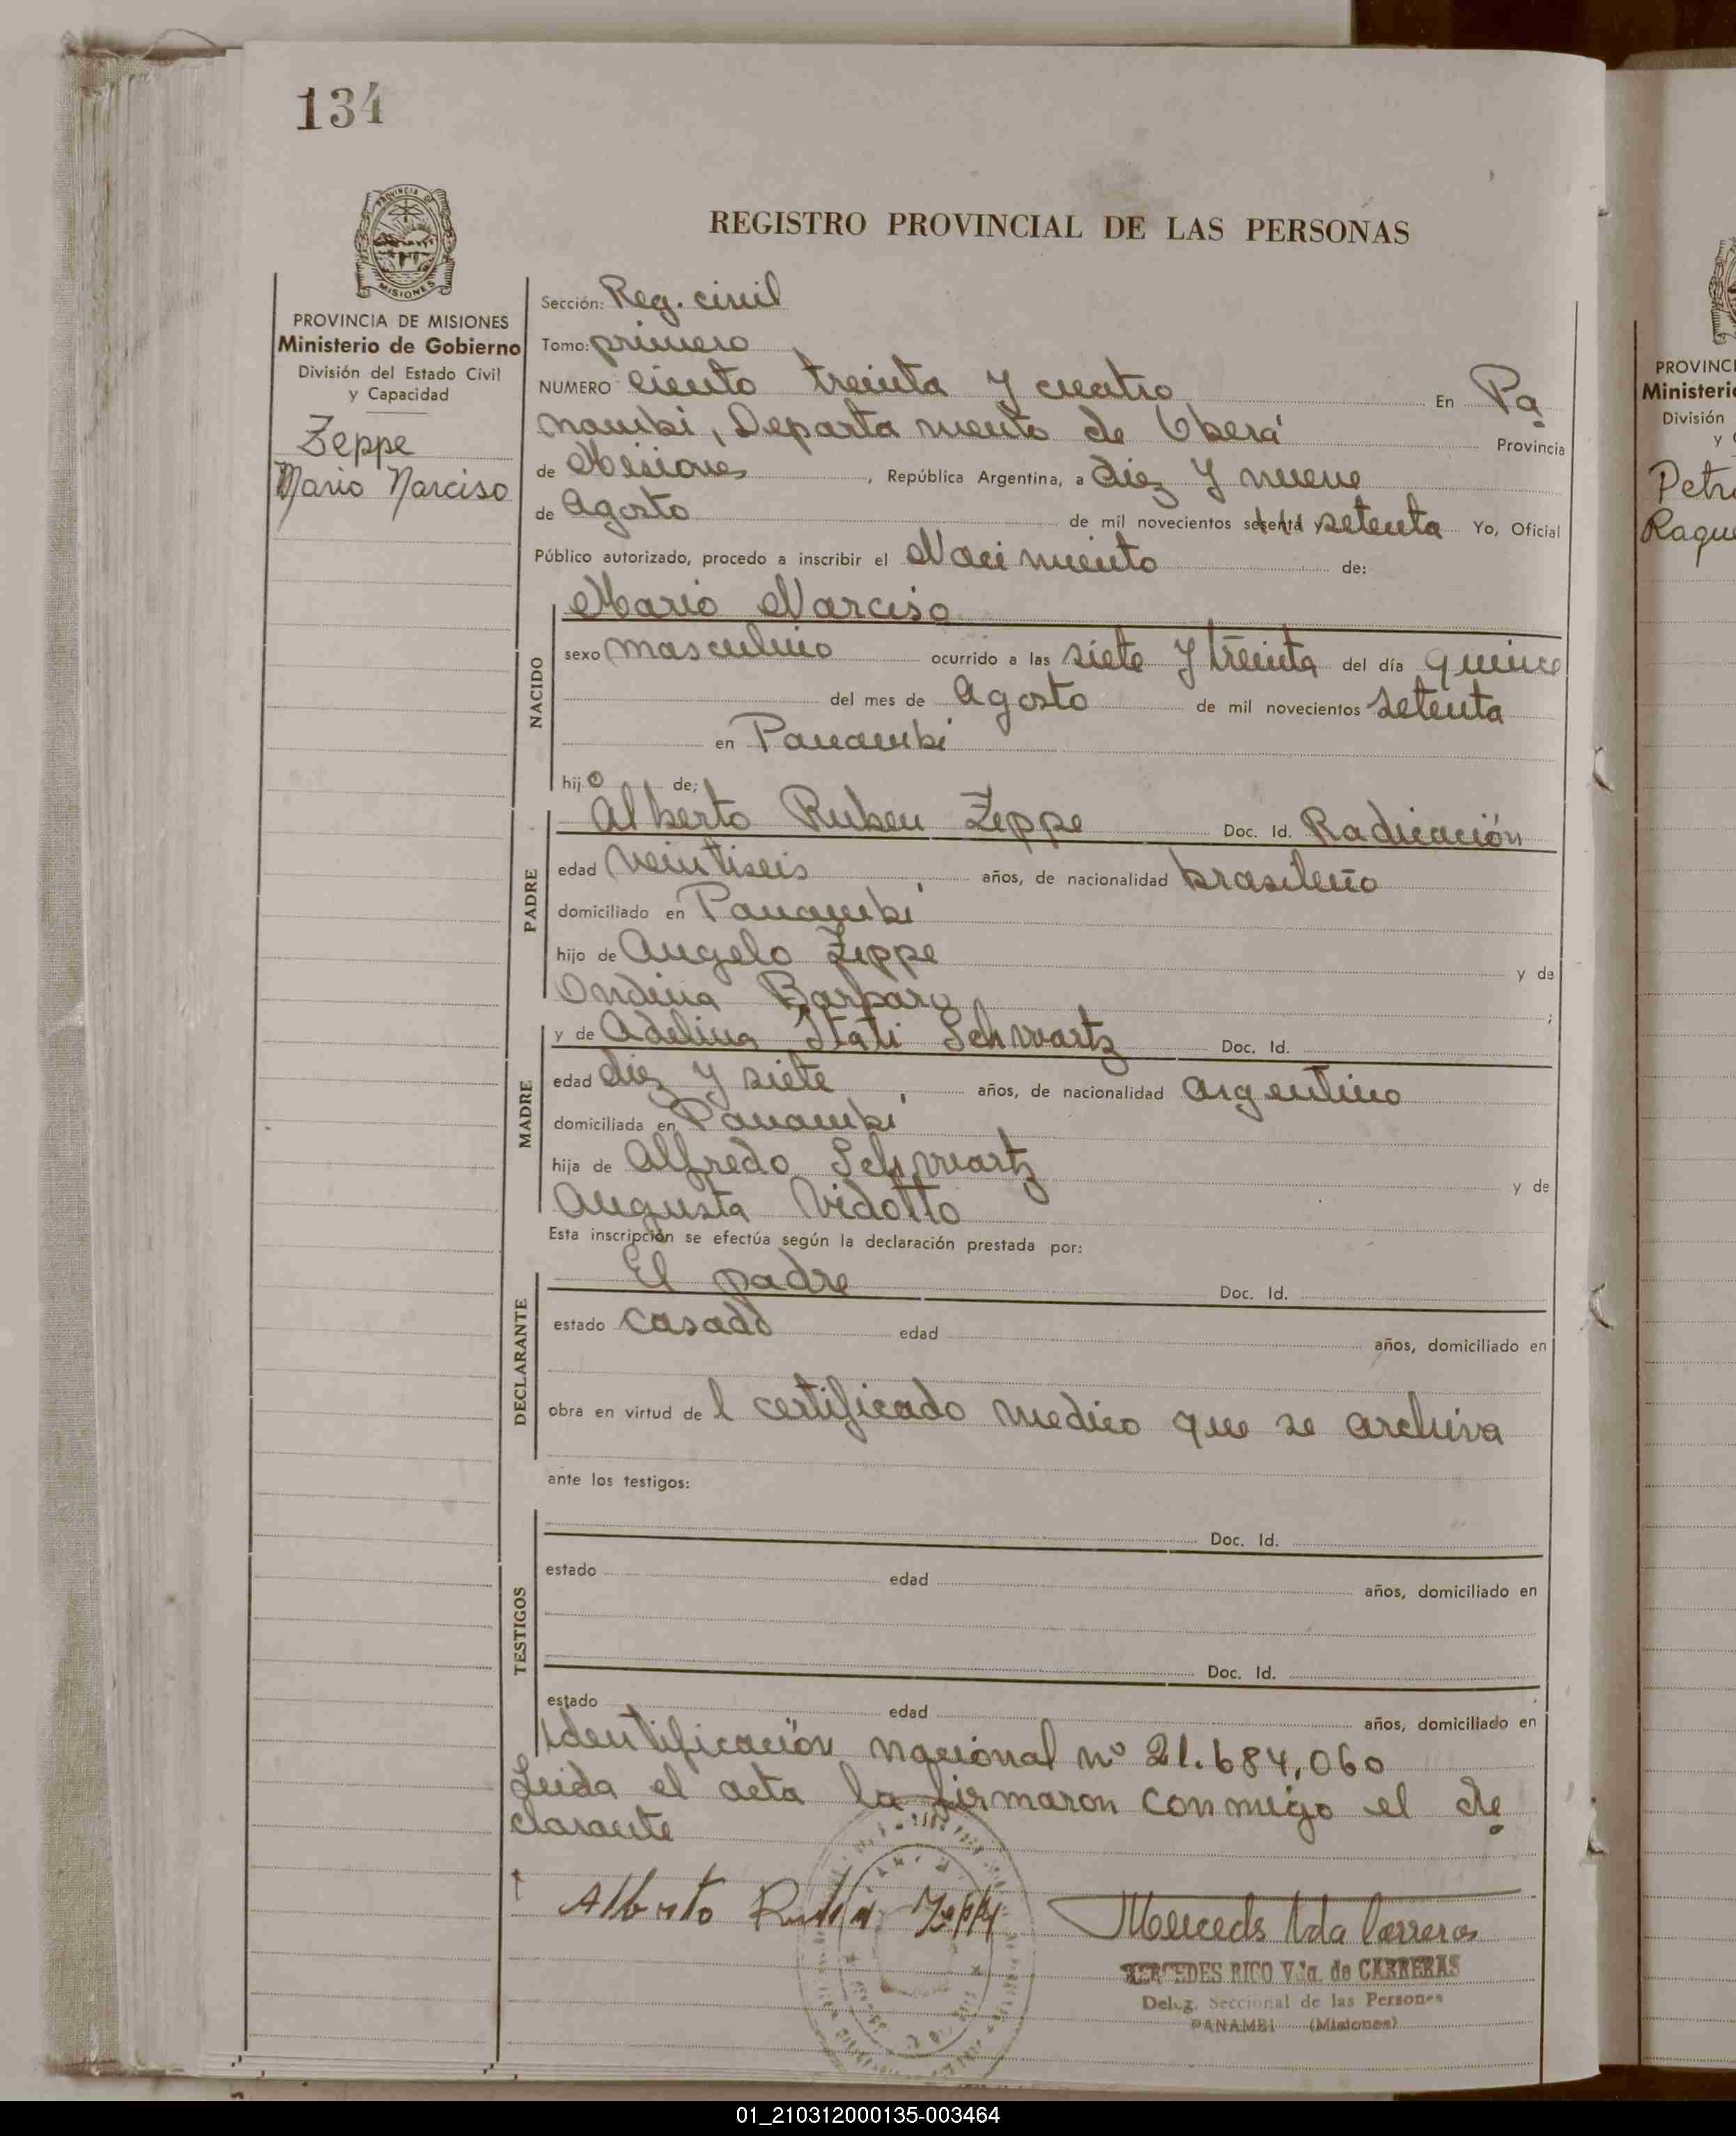 134
PROVINCIA DE MISIONES
MISIONES
PROVINCIA DE MISIONES
Ministerio de Gobierno
División del Estado Civil
y Capacidad
Zeppe
Mario Narciso
REGISTRO PROVINCIAL DE LAS PERSONAS
Sección: Reg. civil
Tomo: primero
NUMERO ciento treinta y cuatro En Pa
nambi, Departamento de Oberá Provincia
de Misiones, República Argentina, a diez y nueve
de Agosto de mil novecientos sesenta y setenta Yo, Oficial
Público autorizado, procedo a inscribir el Nacimiento de:
NACIDO
Mario Narciso
sexo masculino ocurrido a las siete y treinta del día quince
del mes de Agosto de mil novecientos setenta
en Panambí
hijo de;
PADRE
Alberto Ruben Zeppe Doc. Id. Radicación
edad veintiseis años, de nacionalidad brasileño
domiciliado en Panambí
hijo de Angelo Zeppe y de
Ondina Barbara ;
MADRE
y de Adelina Itati Schwartz Doc. Id.
edad diez y siete años, de nacionalidad argentino
domiciliada en Panambí
hija de Alfredo Schwartz y de
Augusta Vidotto
Esta inscripción se efectúa según la declaración prestada por:
DECLARANTE
El padre Doc. Id.
estado casado edad años, domiciliado en
obra en virtud de l certificado medico que se archiva
ante los testigos:
TESTIGOS
Doc. Id.
estado edad años, domiciliado en
Doc. Id.
estado edad años, domiciliado en
Identificación nacional nº 21.684,060
Leida el acta la firmaron conmigo el de
clarante
Alberto Rubén Zeppe
Mercedes Vda Carreras
MERCEDES RICO Vda. de CARRERAS
Deleg. Seccional de las Personas
PANAMBI (Misiones)
PROVINCI
Ministerio
División
y
Petr
Raque
01_210312000135-003464